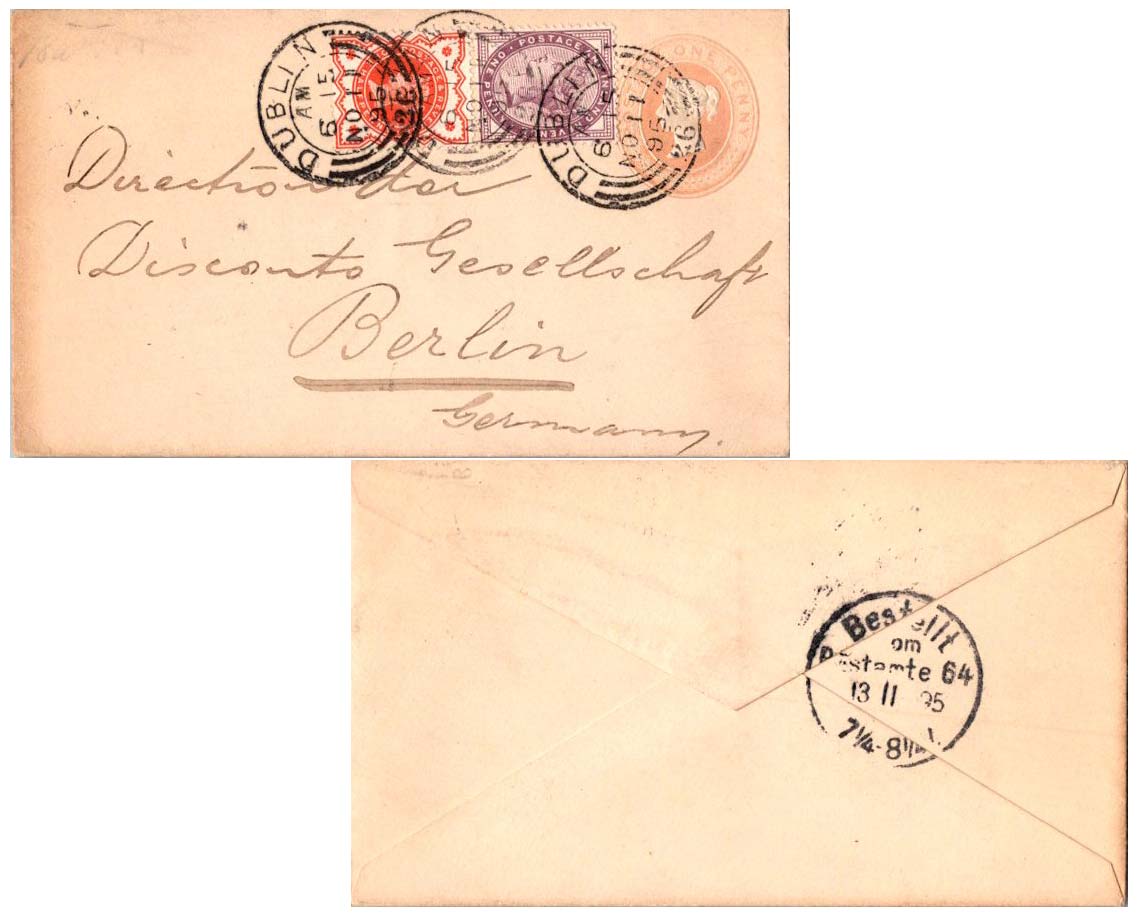 DUBLIN
6 15 AM
NO 11
95
POSTAGE & REVENUE
ONE PENNY
POSTAGE
DUBLIN
6 15 AM
NO 11
95
ONE PENNY
Direction der
Disconto Gesellschaft
Berlin
Germany.
Bestellt
om
Postamte 64
13 11 95
7¼-8¼